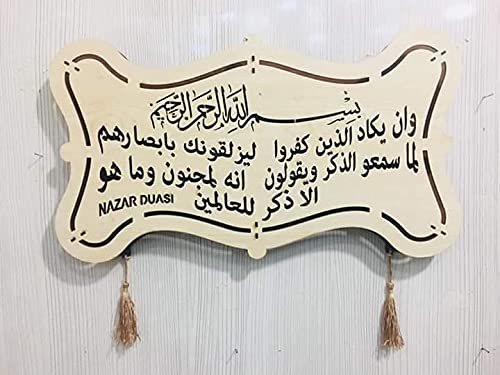 بسم الله الرحمن الرحيم
وان يكاد الذين كفروا ليزلقونك بابصارهم
لما سمعو الذكر ويقولون انه لمجنون وما هو
الا ذكر للعالمين
NAZAR DUASI